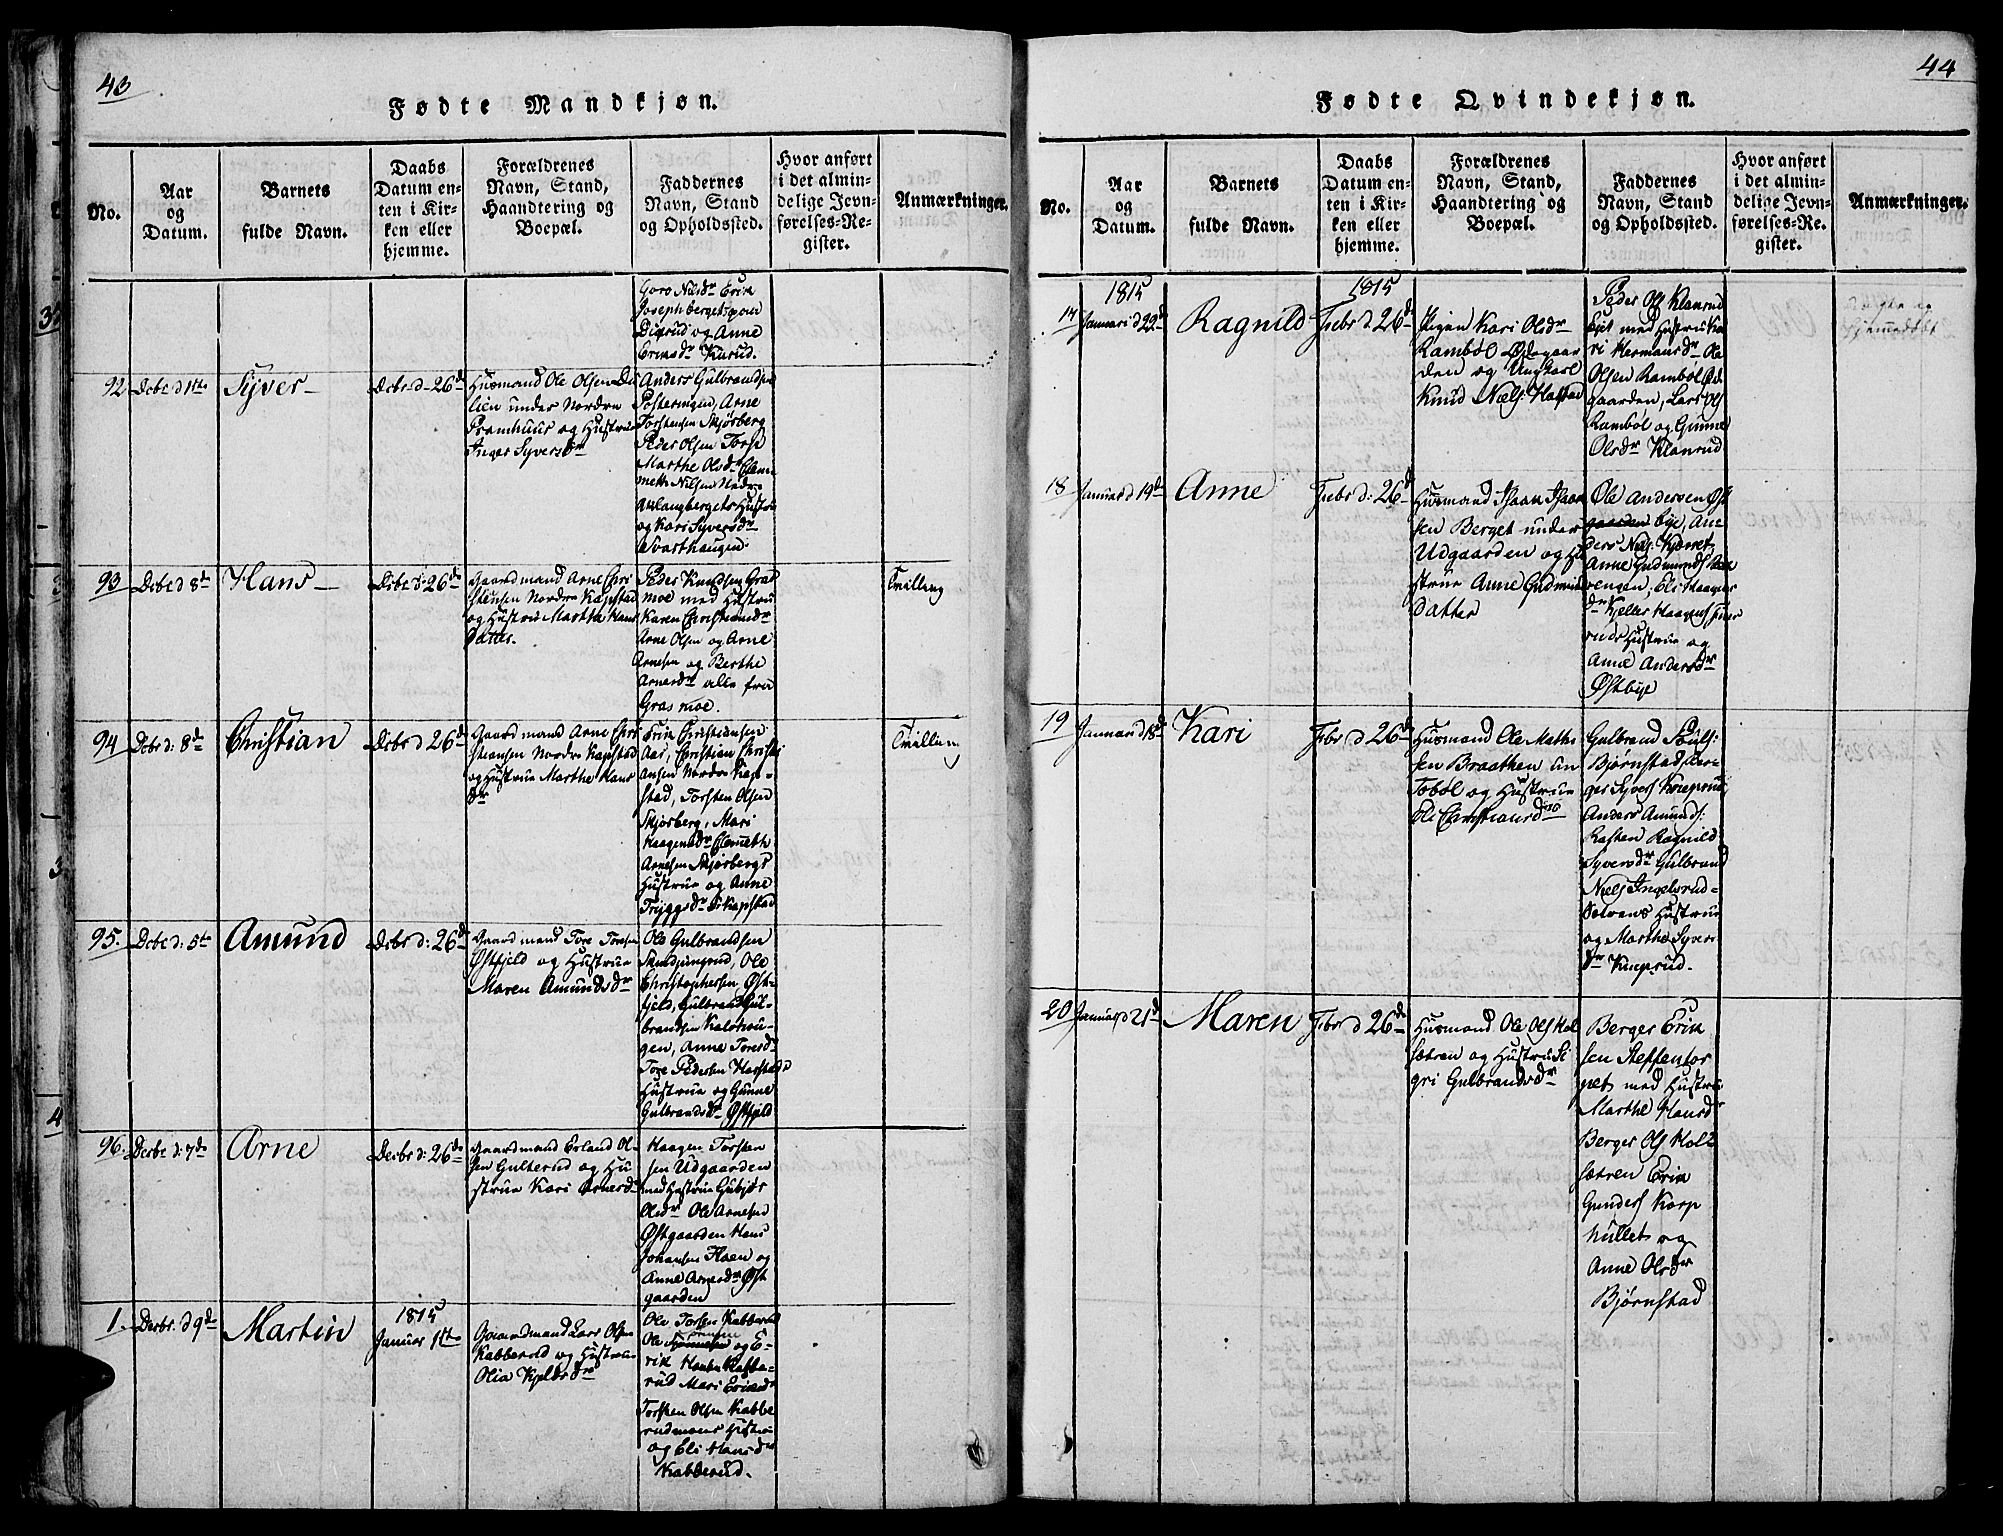 43
Fødte Mandkjøn.
No.
Aar
og
Datum.
Barnets
fulde Navn.
Daabs
Datum en-
ten i Kir-
ken eller
hjemme.
Forældrenes
Navn, Stand,
Haandtering og
Boepæl.
Faddernes
Navn, Stand
og Opholdssted.
Hvor anført
i det almin-
delige Jevn-
førelses-Re-
gister.
Anmærkninger.
Goro Nilsdr Erik
Josephberget
Digrud og Anne
92
Decbr d 1ste
Syver
Decbr d 26d
Husmand Ole Olsen
lien under Nordre
Pramhuus og Hustrue
Inger Syversdr
Anders Gulbrandsen
Arne
Torstensen Skjørberg
Peder Olsen
Marthe Olsdr
Nilsen
Hustrue
og Kari Syversdr
Svarthaugen
93
Decbr d 8de
Hans
Decbr d: 26d
Gaardmand Arne Chri
stensen Nordre Kapstad
og Hustrue Marthe Hans
datter.
Peder Knudsen Gras
moe med Hustrue
Karen Christiansdr
Arne Olsen og Arne
Arnesen og Berthe
Arnesdr alle fra
Grasmoe.
Tvilling
94
Decbr d: 8de
Christian
Decbr d 26d
Gaardmand Arne Chri
stiansen Nordre Kapstad
og Hustrue Marthe Hans
dr
Erik Christiansen
Aas, Christian Christi
ansen Nordre Kap-
stad, Torsten Olsen
Skjørberg, Mari
Haagensdr
Arnesen Skjørbergs
Hustrue og Anne
Tryggsdr Kapstad
Tvilling
95.
Decbr d: 5te
Amund
Decbr d: 26d
Gaardmand Tore Toresen
Østfjeld og Hustrue
Maren Amundsdr
Ole Gulbrandsen
Ole
Christophersen Øst-
fjeld, Gulbrand Gul-
brandsen Kalshou-
gen, Anne Toresdr
Tore Pedersen
Hustrue og Gunnel
Gulbrandsdr Østfjeld
96.
Decbr d: 7de
Arne
Decbr d: 26de
Gaardmand Erland Ol-
sen Gulterud og Hu
strue Kari Arnesdr
Haagen Torsten
sen Udgaarden
med Hustrue Gubjør
Olsdr Ole Arnesen
Østgaarden Hans
Johansen Haen og
Anne Arnesdr Øst
gaarden
1.
Decbr. d 9de
Martin
1815
Januar 1ste
Gaardmand Lars Olsen
Kabberud og Hustrue
Olia Kjeldsdr
Ole Torsen Kabberud
Ole og E-
rik Kabbe-
rud Mari Eriksdr
Torsten Olsen Kabbe
rudmoens Hustrue
og Eli Hansdr
Kabberud.
44
Fødte Qvindekjøn.
No.
Aar
og
Datum.
Barnets
fulde Navn.
Daabs
Datum en-
ten i Kir-
ken eller
hjemme.
Forældrenes
Navn, Stand,
Haandtering og
Boepæl.
Faddernes
Navn, Stand
og Opholdssted.
Hvor anført
i det almin-
delige Jevn-
førelses-Re-
gister.
Anmærkninger.
17
1815
Januari d 22d
Ragnild
1815
Febr d 26d
Pigen Kari Olsdr
Rambøl Ødegaar
den og Ungkarl
Knud Næls: Hafstad
Peder Ols Klanrud
med Hustrue Ka
ri Hermansdr Ole
Olsen Rambøl Øde
gaarden, Lars Ols
Rambøl og Gunnel
Olsdr Klanrud
18
Januar d 19d
Anne
Febr d: 26d
Husmand Isaac Isaac
sen Berget under
Udgaarden og Hu
strue Anne Gudmunds
datter
Ole Andersen Øst
gaarden bye, An-
ders Nels:
Anne Gudmunds
vengen, Eli Haagens
dr
Hustrue og
Anne Andersdr
Østbye
19
Januar d 18d
Kari
Febr d 26d
Husmand Ole Mathi
sen Braathen un
Tobøl og Hustrue
Eli Christiansdr
Gulbrand Pouls:
Bjørnstad, Bør-
ger Syvers Kneprud
Anders Amunds:
Rasten Ragnild
Syversdr Gulbrand
Niels Ingelsrud-
Hustrue
og Marthe Syvers
dr Kneprud.
20
Januar d 21d
Maren
Febr d 26d
Husmand Ole Ols Hol
sætren og Hustrue Si
gri Gulbrandsdr
Berger Erik
sen Steffentor
pet med Hustrue
Marthe Hansdr
Berger Ols Hol
sætren Erik
Gunders Korp
hullet og
Anne Olsdtr
Bjørnstad